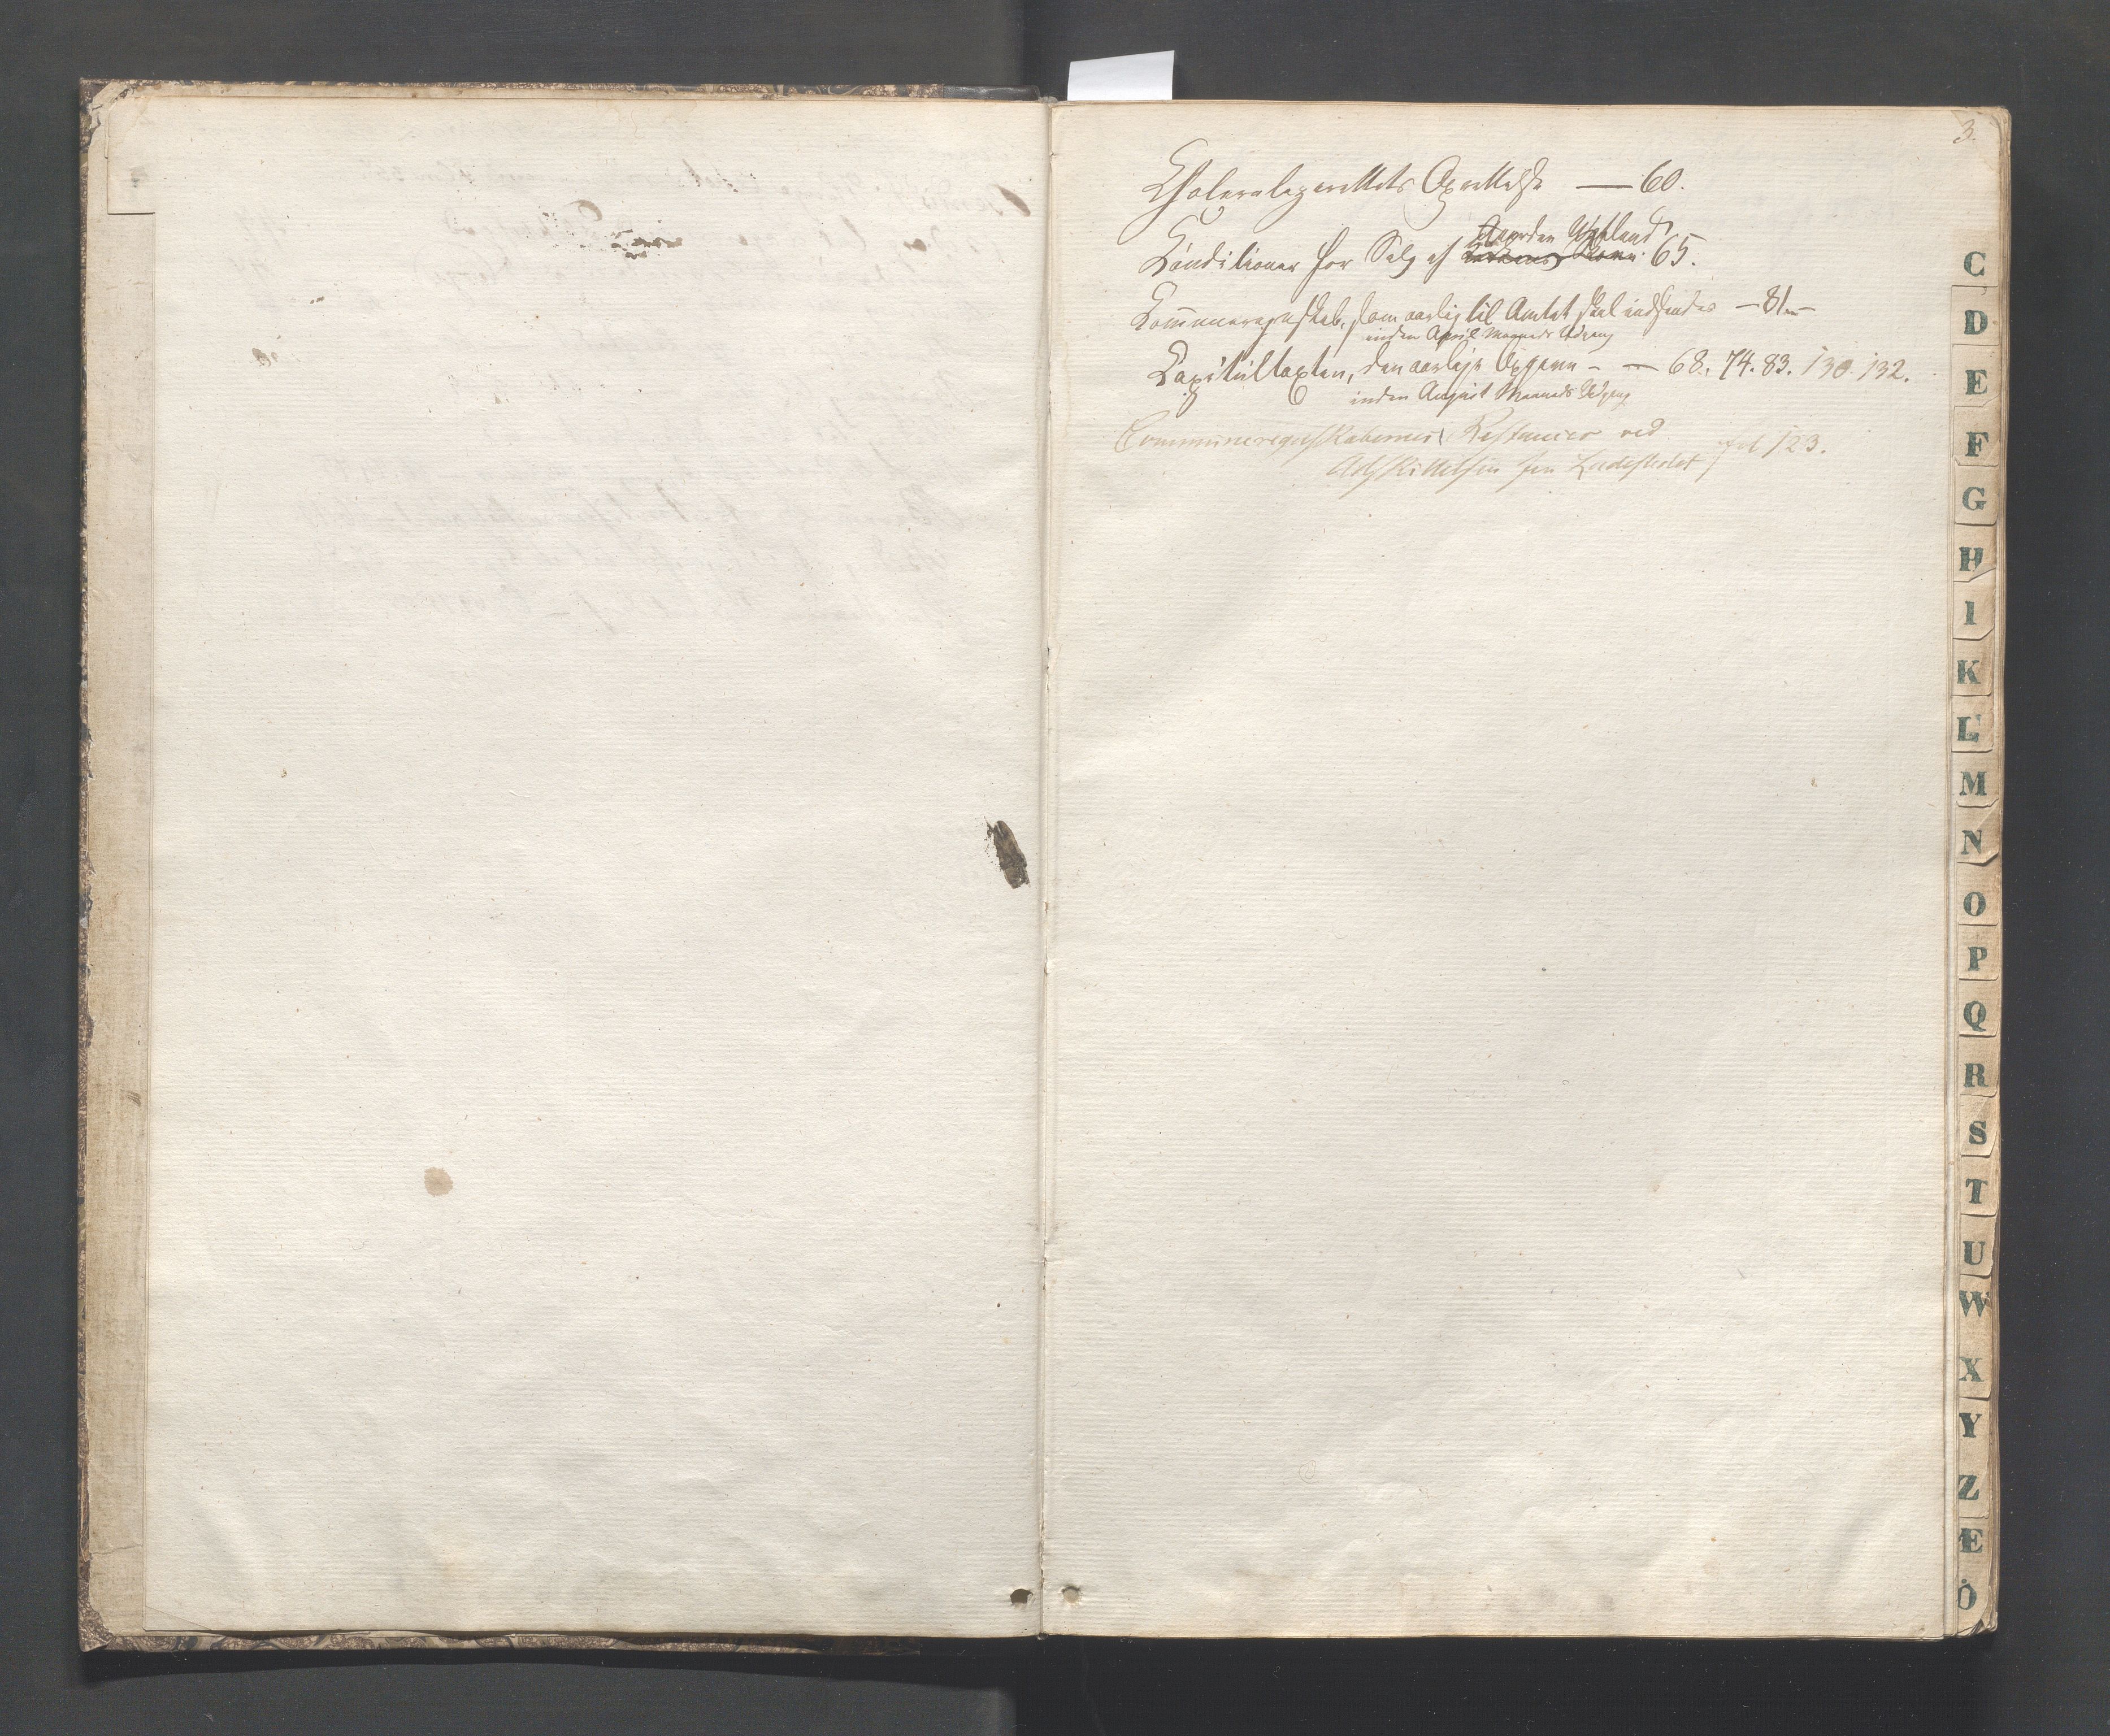 3.
Choleralazarettets Oprettelse — 60.
Gaarden Vestland
Conditioner for Salg af 65.
Communeregnskab, som aarlig til Amtet skal indsendes — 81 —
inden April Maaneds Udgang
Capitultaxten, den aarlige Opgave — — 68. 74. 83. 130. 132.
inden August Maaneds Udgang
Communeregnskabernes Restancer ved
Adskillelsen fra Ladestedet fol 123.
C
D
E
F
G
H
I
K
L
M
N
O
P
Q
R
S
T
U
W
X
Y
Z
Æ
Ö